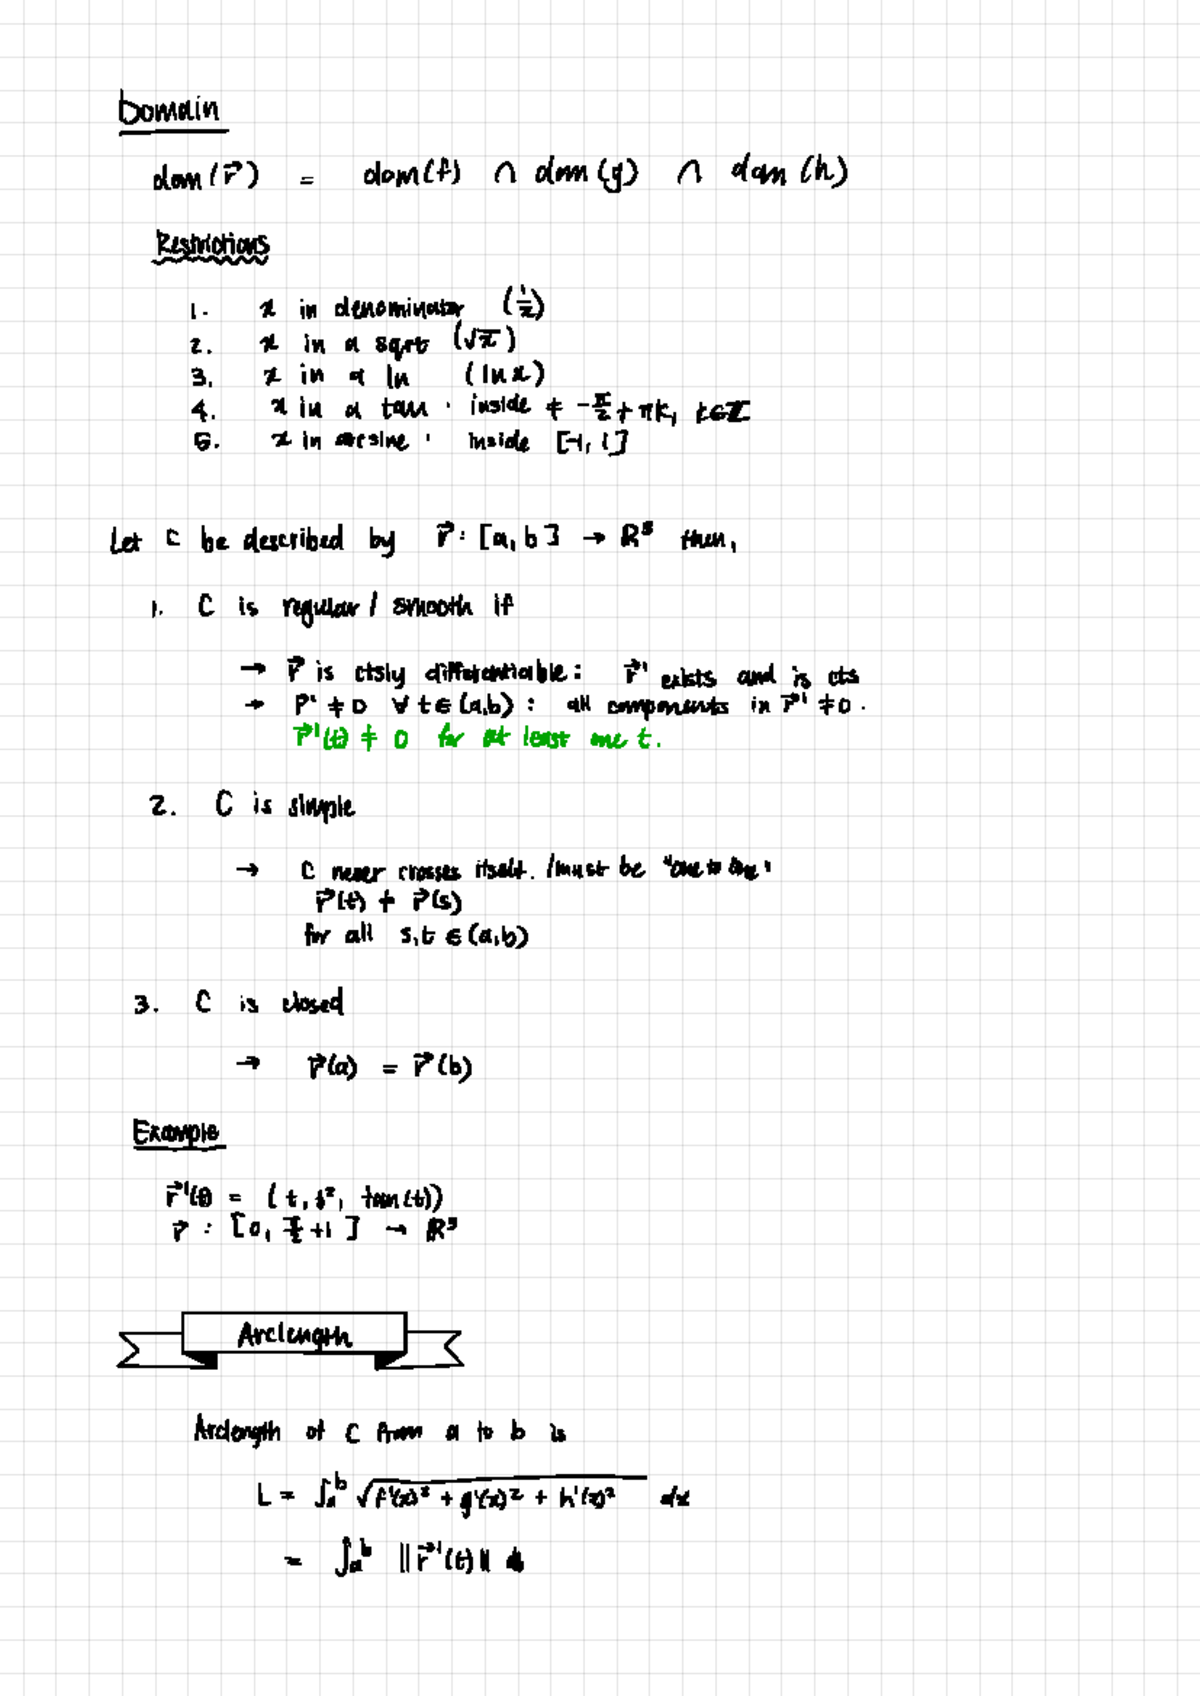 Domain
dom(r⃗) = dom(f) ∩ dom(g) ∩ dom(h)
Restrictions
1. x in denominator (1/x)
2. x in a sqrt (√x)
3. x in a ln (ln x)
4. x in a tan · inside ≠ -π/2 + πk, k∈ℤ
5. x in arcsine · inside [-1, 1]
Let C be described by r⃗: [a, b] → ℝ³ then,
1. C is regular / smooth if
→ r⃗ is ctsly differentiable: r⃗' exists and is cts
→ r' ≠ 0 ∀ t∈(a,b): all components in r⃗' ≠ 0.
r⃗'(t) ≠ 0 for at least one t.
2. C is simple
→ C never crosses itself. /must be "one to one"
r⃗(t) ≠ r⃗(s)
for all s,t ∈ (a,b)
3. C is closed
→ r⃗(a) = r⃗(b)
Example
r⃗'(t) = (t, t², tan(t))
r⃗ : [0, π/2 + 1] → ℝ³
Arclength
Arclength of C from a to b is
L = ∫ₐᵇ √f'(x)² + g'(x)² + h'(x)² dx
= ∫ₐᵇ ||r⃗'(t)||